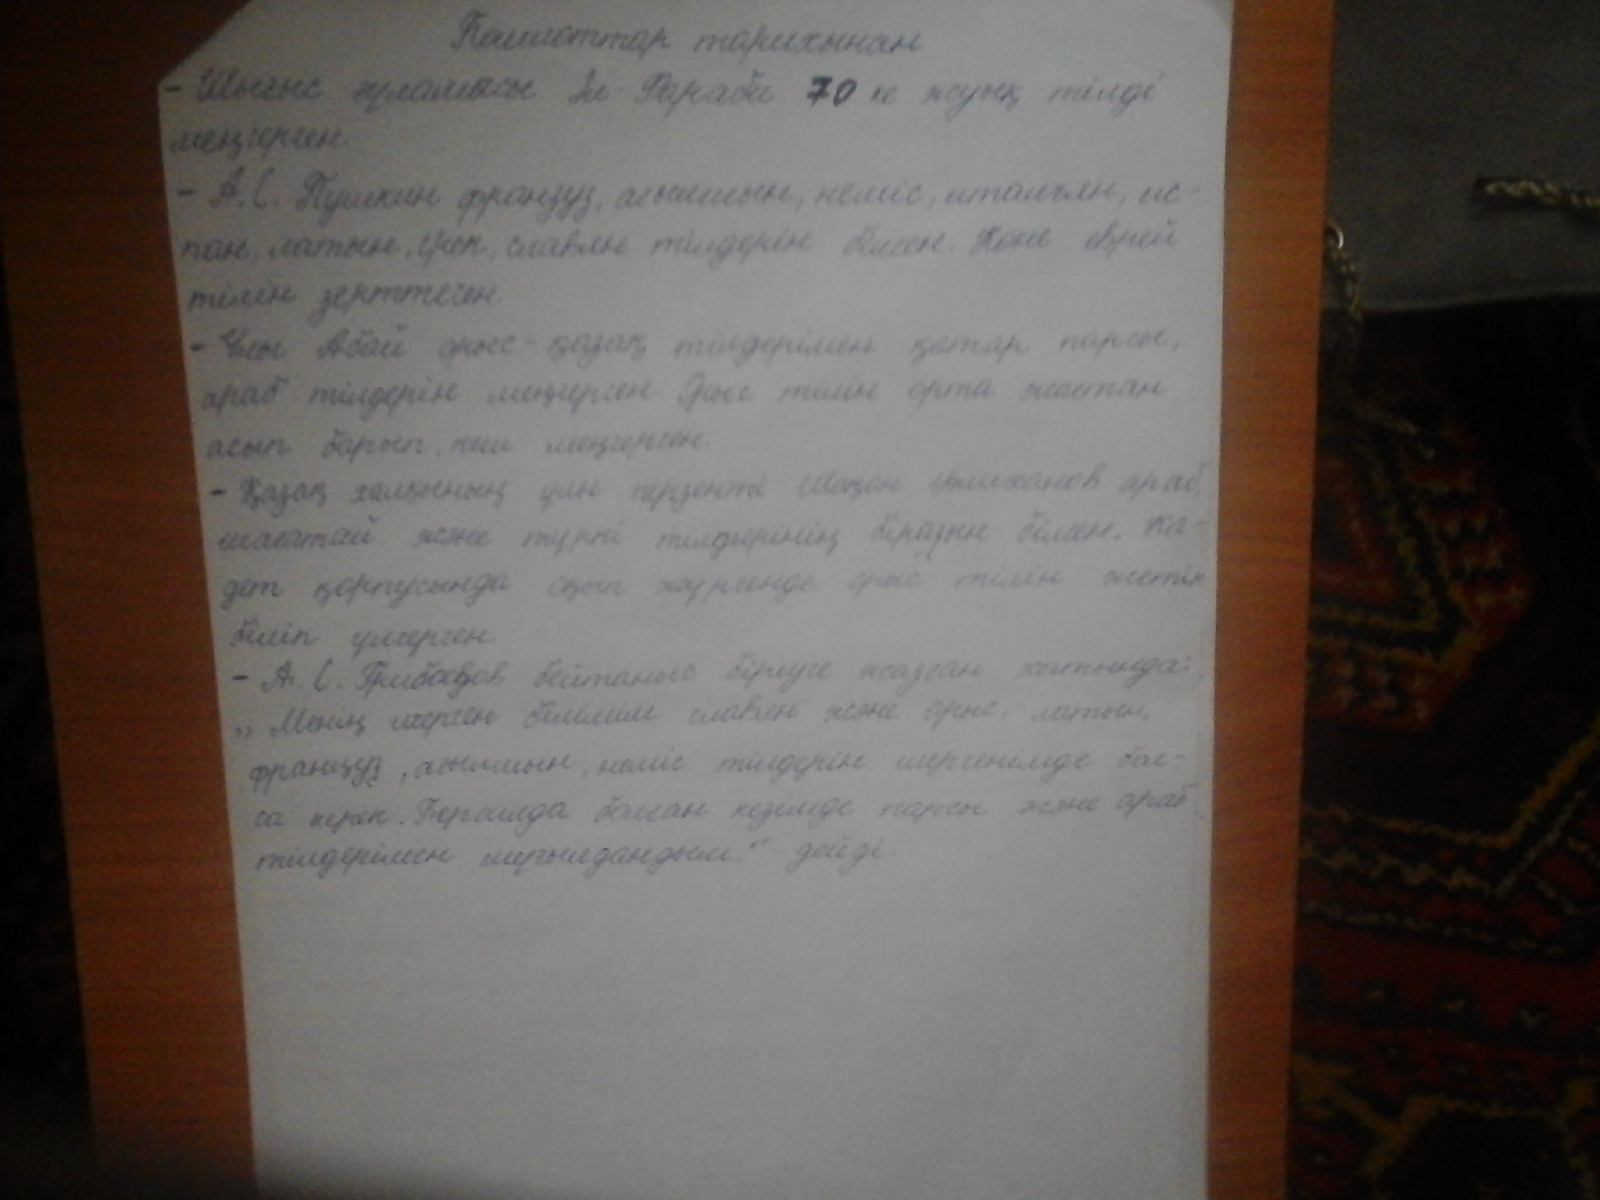 Полиглоттар тарихынан
- Шығыс ғұламасы Әл-Фараби 70 ке жуық тілді
меңгерген.
- А.С. Пушкин француз, ағылшын, неміс, итальян, ис-
пан, латын, грек, славян тілдерін білген. Көне еврей
тілін зерттеген.
- Ұлы Абай орыс-қазақ тілдерімен қатар парсы,
араб тілдерін меңгерген. Орыс тілін орта жастан
асып барып, кеш меңгерген.
- Қазақ халқының ұлы перзенті Шоқан Уәлиханов араб,
шағатай және түркі тілдерінің біразын білген. Ка-
дет корпусында оқып жүргенде орыс тілін жетік
біліп үлгерген.
- А. С. Грибоедов бейтаныс біреуге жазған хатында:
„ Менің игерген білімім славян және орыс, латын,
француз, ағылшын, неміс тілдерін игергенімде бол-
са керек. Персияда болған кезімде парсы және араб
тілдерімен шұғылдандым." - дейді.